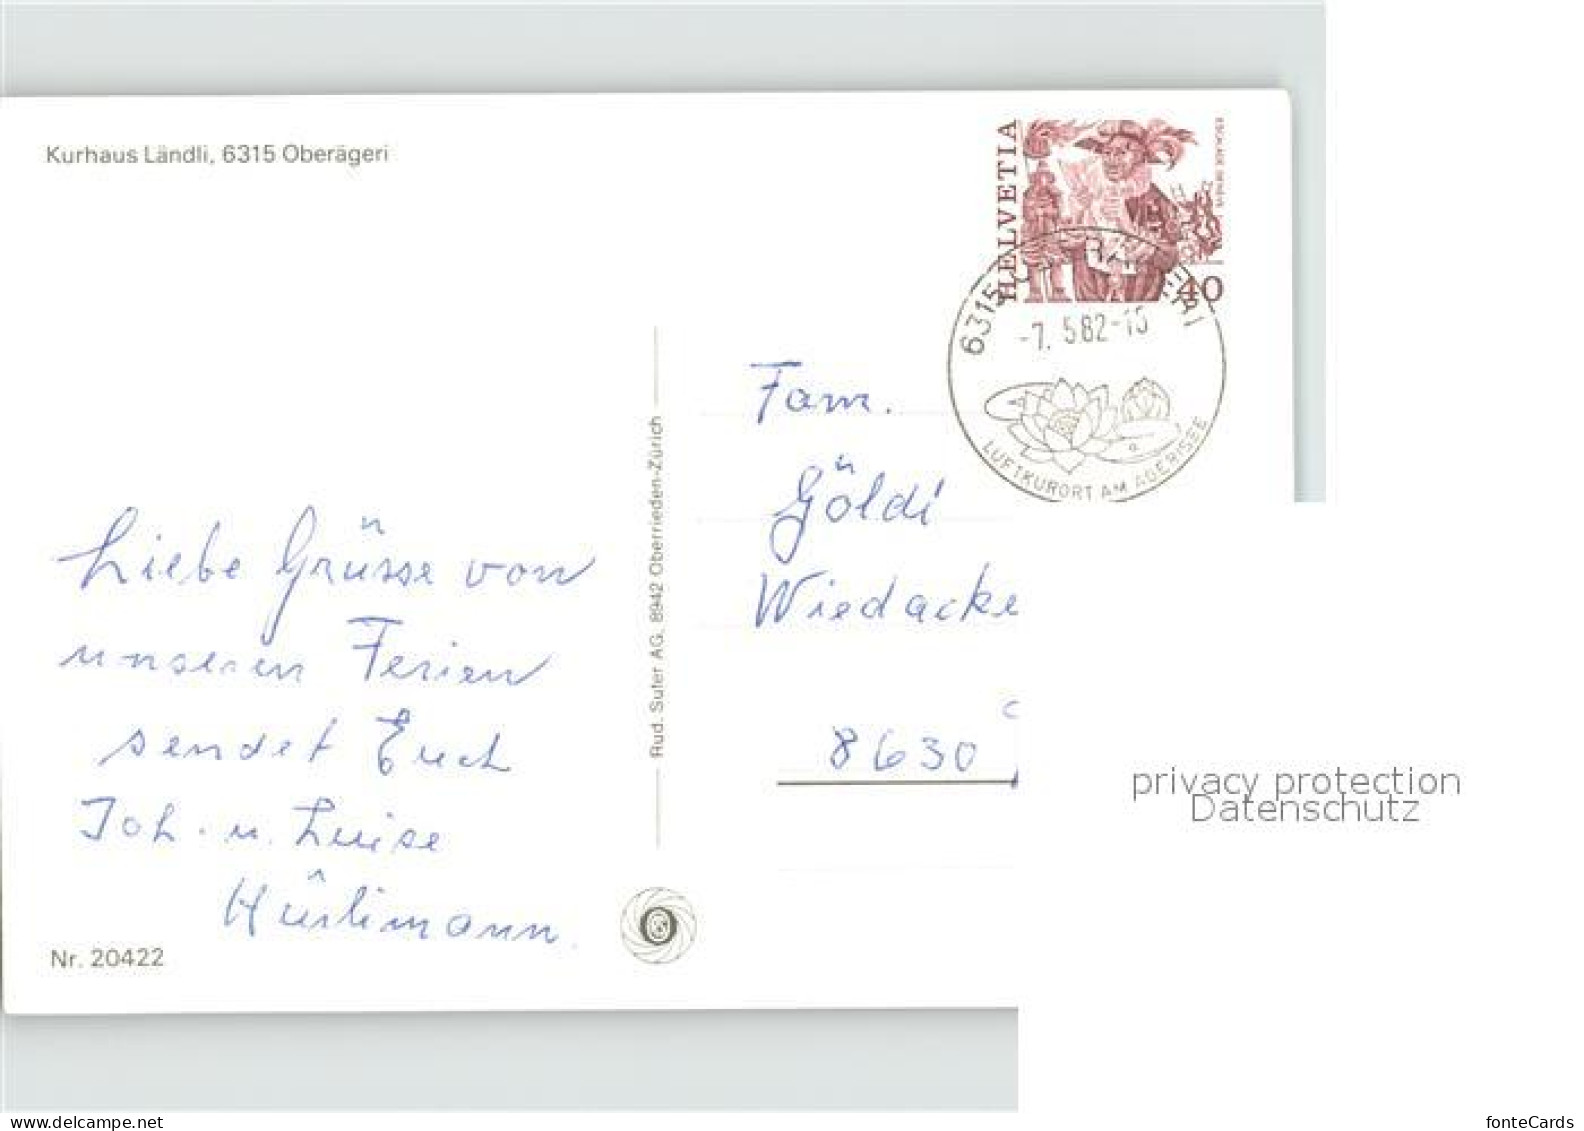 Kurhaus Ländli, 6315 Oberägeri
HELVETIA
ESCALADE GENÈVE
40
6315 OBERÄGERI
-7. 5.82-15
LUFTKURORT AM AEGERISEE
Liebe Grüsse von
unseren Ferien
sendet Euch
Joh. u. Luise
Hürlimann.
Nr. 20422
Rud. Suter AG. 8942 Oberrieden-Zürich
Fam.
Göldi
Wiedacke
8630
privacy protection
Datenschutz
fonteCards